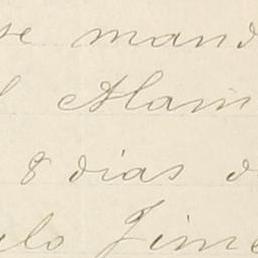 se mand
l Alam
8 dias d
ulo Jime